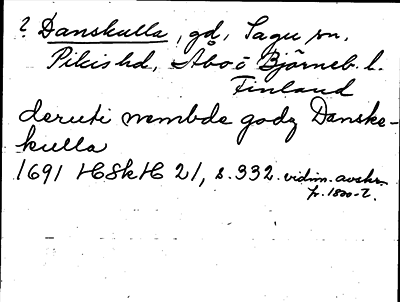 ? Danskulla, gd, Sagu sn.
Pikis hd, Åbo o Björneb. l.
Finland
deruti nembde godz Danske-
kulla
1691 HSkH 21, s. 332. vidim. avskr.
fr. 1800-t.